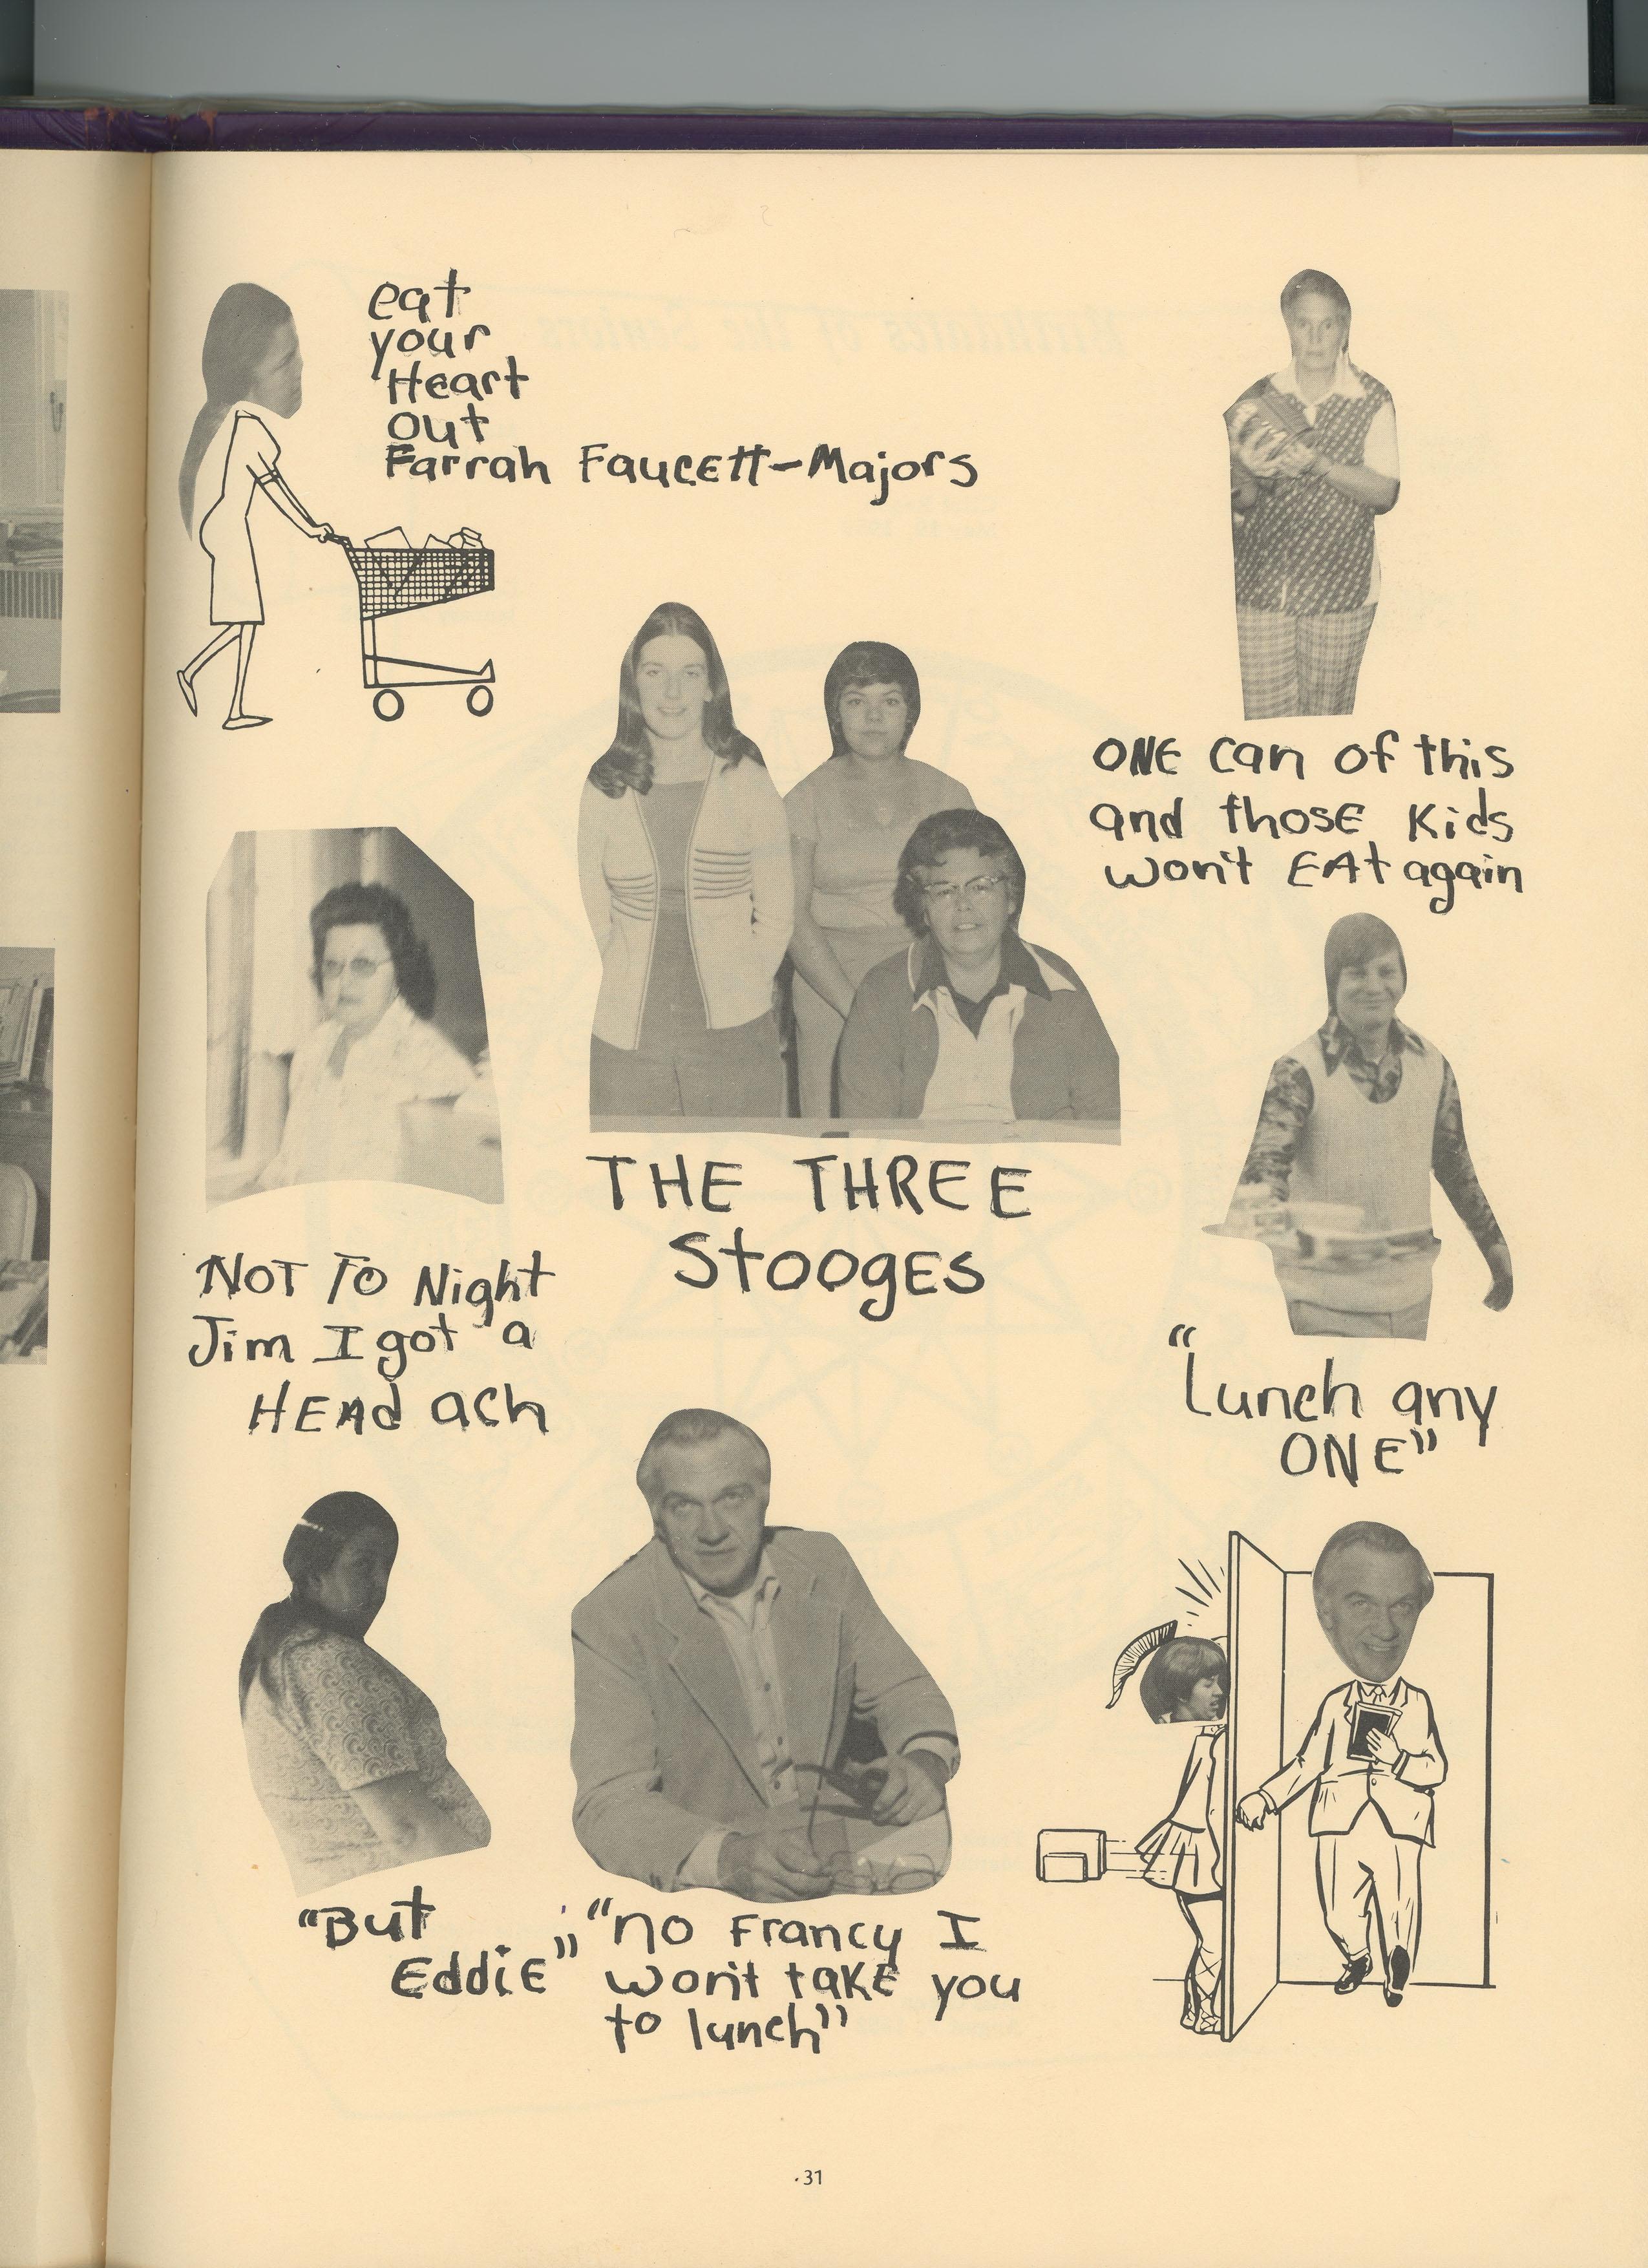 eat
your
Heart
out
Farrah Faucett-Majors
ONE can of this
and those Kids
won't EAt again
THE THREE
StoogES
NOT TO Night
Jim I got a
HEAd ach
"Lunch any
ONE"
"But
EddiE"
"no Francy I
won't takE you
to lunch"
31